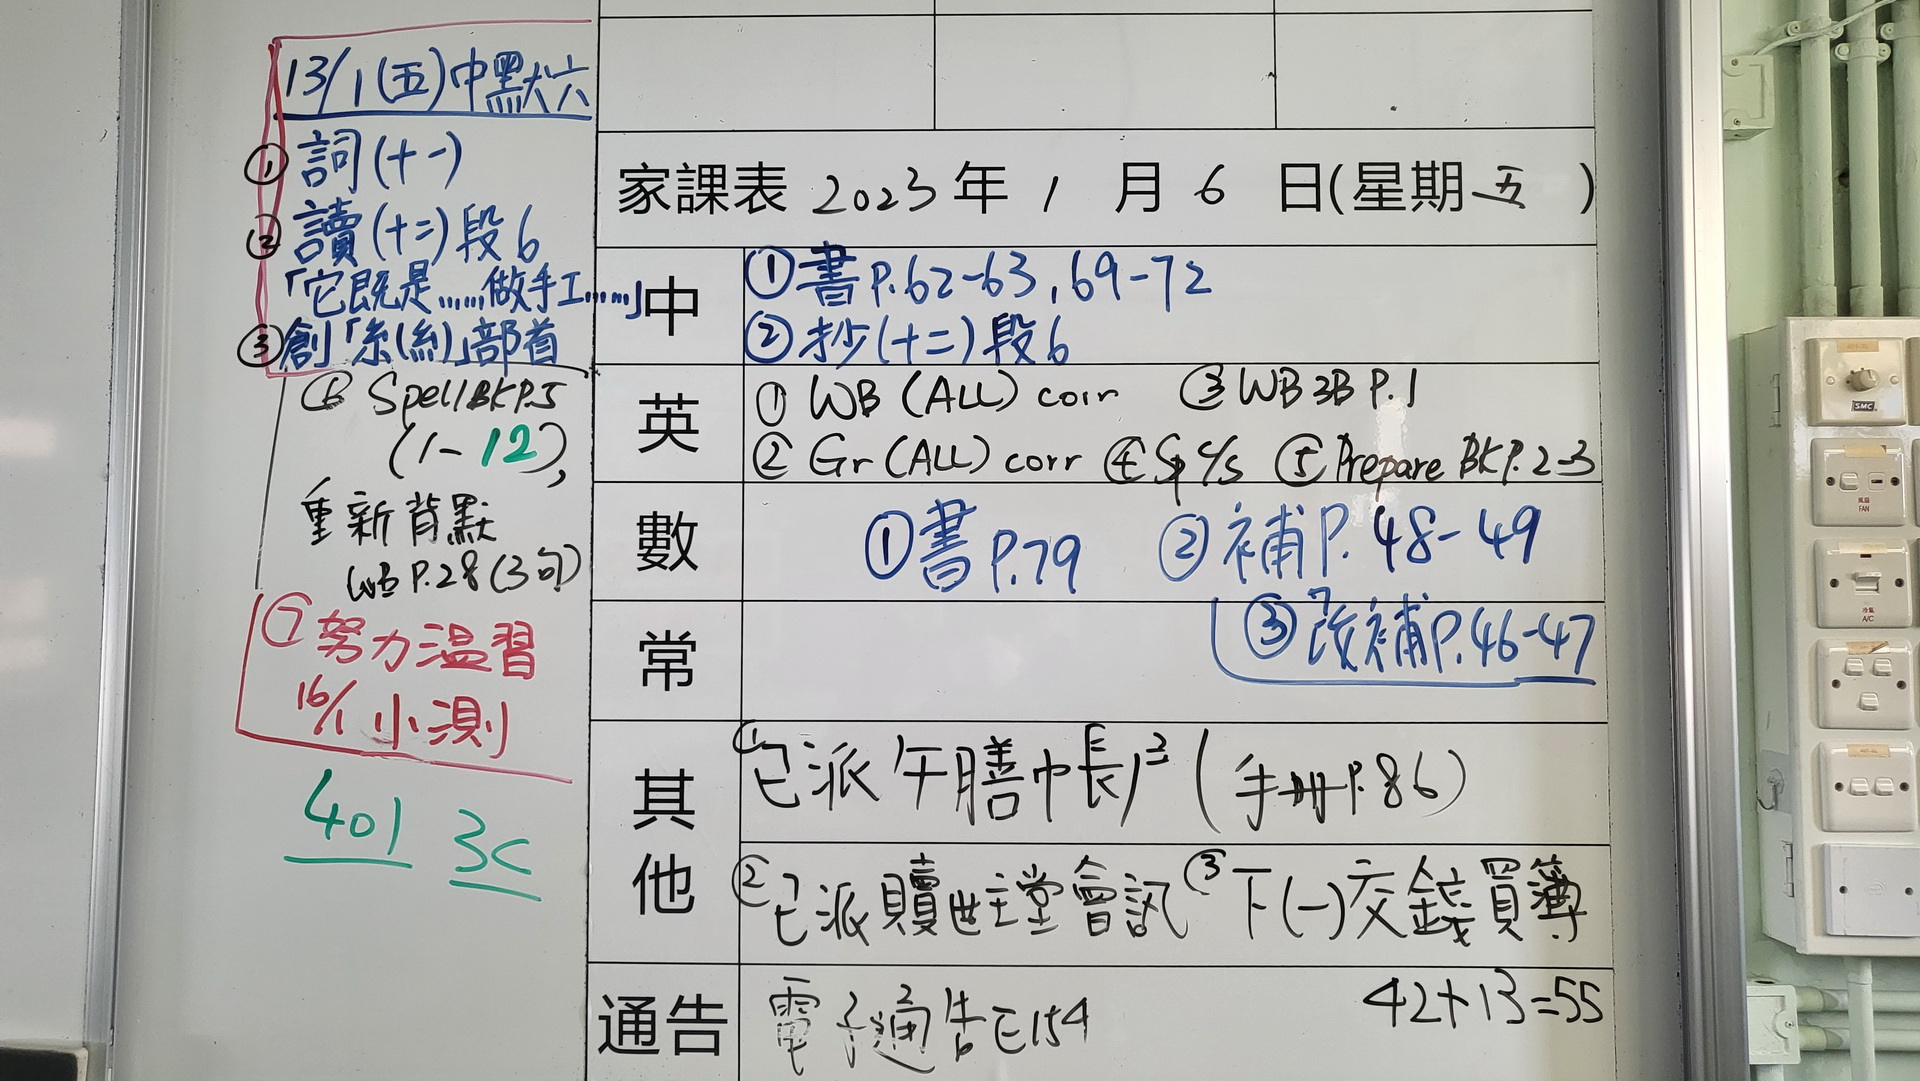 13/1(五)中默六
① 詞(十一)
② 讀(十二)段6
「它既是......做手工......」
③ 創「糸(糹)」部首
⑥ Spell BK P.5
(1-12),
重新背默
WB P.28(3句)
⑦ 努力温習
16/1 小測
401 3C
家課表 2023年 1 月 6 日(星期五)
中
①書P.62-63, 69-72
②抄(十二)段6
英
① WB (ALL) corr ③ WB 3B P.1
② Gr (ALL) corr ④ Sp c/s ⑤ Prepare BK P.2-3
數
①書P.79 ②補P.48-49
③改補P.46-47
常
其他
①已派午膳(手冊P.86)
②已派贖世主堂會訊 ③下(一)交錢買簿
通告
電子通告E154
42+13=55
SMC
風扇
FAN
冷氣
A/C